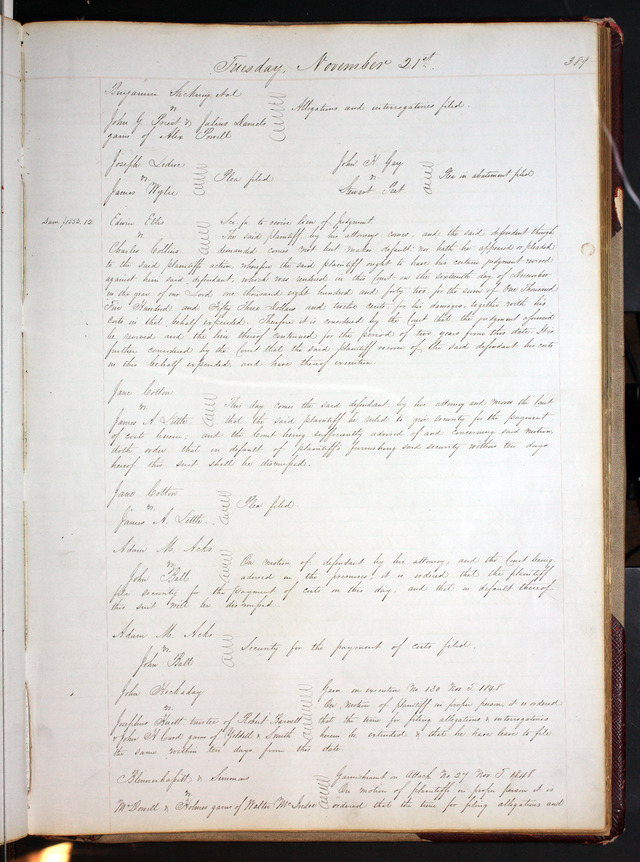 Tuesday, November 21st.
389
Benjamin
vs
Allegations and interrogatories filed.
John G. Forest & Julius Daniels
garns of Alex Powell
Joseph Leduc
vs
Plea filed
James Wylie
John H Gay
vs
Plea in abatement filed
Stewart Peet
Dam $1052.12
Edwin Ellis
vs
Charles Collins
Sci fa to revive lien of judgment.
The said plaintiff by his attorney comes and the said defendant though
demanded comes not but makes default; nor hath he appeared or pleaded
to the said plaintiffs action, wherefore the said plaintiff ought to have his certain judgment revived
against him said defendant, which was rendered in this Court on the sixteenth day of November
in the year of our Lord one thousand eight hundred and forty two, for the sum of One Thousand
Five Hundred and Fifty Three Dollars and twelve cents, for his damages, together with his
costs in that behalf expended. Therefore it is considered by the Court that the judgment aforesaid
be revived and the lien thereof continued for the period of two years from this date. It is
further considered by the Court that the said plaintiff recover of the said defendant his costs
in this behalf expended, and have thereof execution.
Jane Cotton
vs
James A. Little
This day comes the said defendant by his attorney and moves the Court
that the said plaintiff be ruled to give security for the payment
of costs herein, and the Court being sufficiently advised of and concerning said motion
doth order that in default of plaintiffs furnishing said security within ten days
hereof this suit shall be dismissed.
Jane Cotton
vs
Plea filed
James A. Little
Adam M. Acks
vs
John Ball
On motion of defendant by his attorney, and the Court being
advised in the premises, it is ordered that the plaintiff
file security for the payment of costs on this day, and that in default thereof
this suit will be dismissed.
Adam M. Acks
vs
Security for the payment of costs filed.
John Ball
John Hockaday
vs
Garn. on execution No 130 Nov T. 1848
On motion of plaintiff in proper person it is ordered
Josephus Huett trustee of Robert Barnett
that the time for filing allegations & interrogatories
& John H garns of & Smith
herein be extended, & that he have leave to file
the same within ten days from this date.
& Simmons
vs
Garnishment on Attach No 27 Nov T. 1848
On motion of plaintiffs in proper person it is
McDowell & Holmes garns of Walter
ordered that the time for filing allegations and